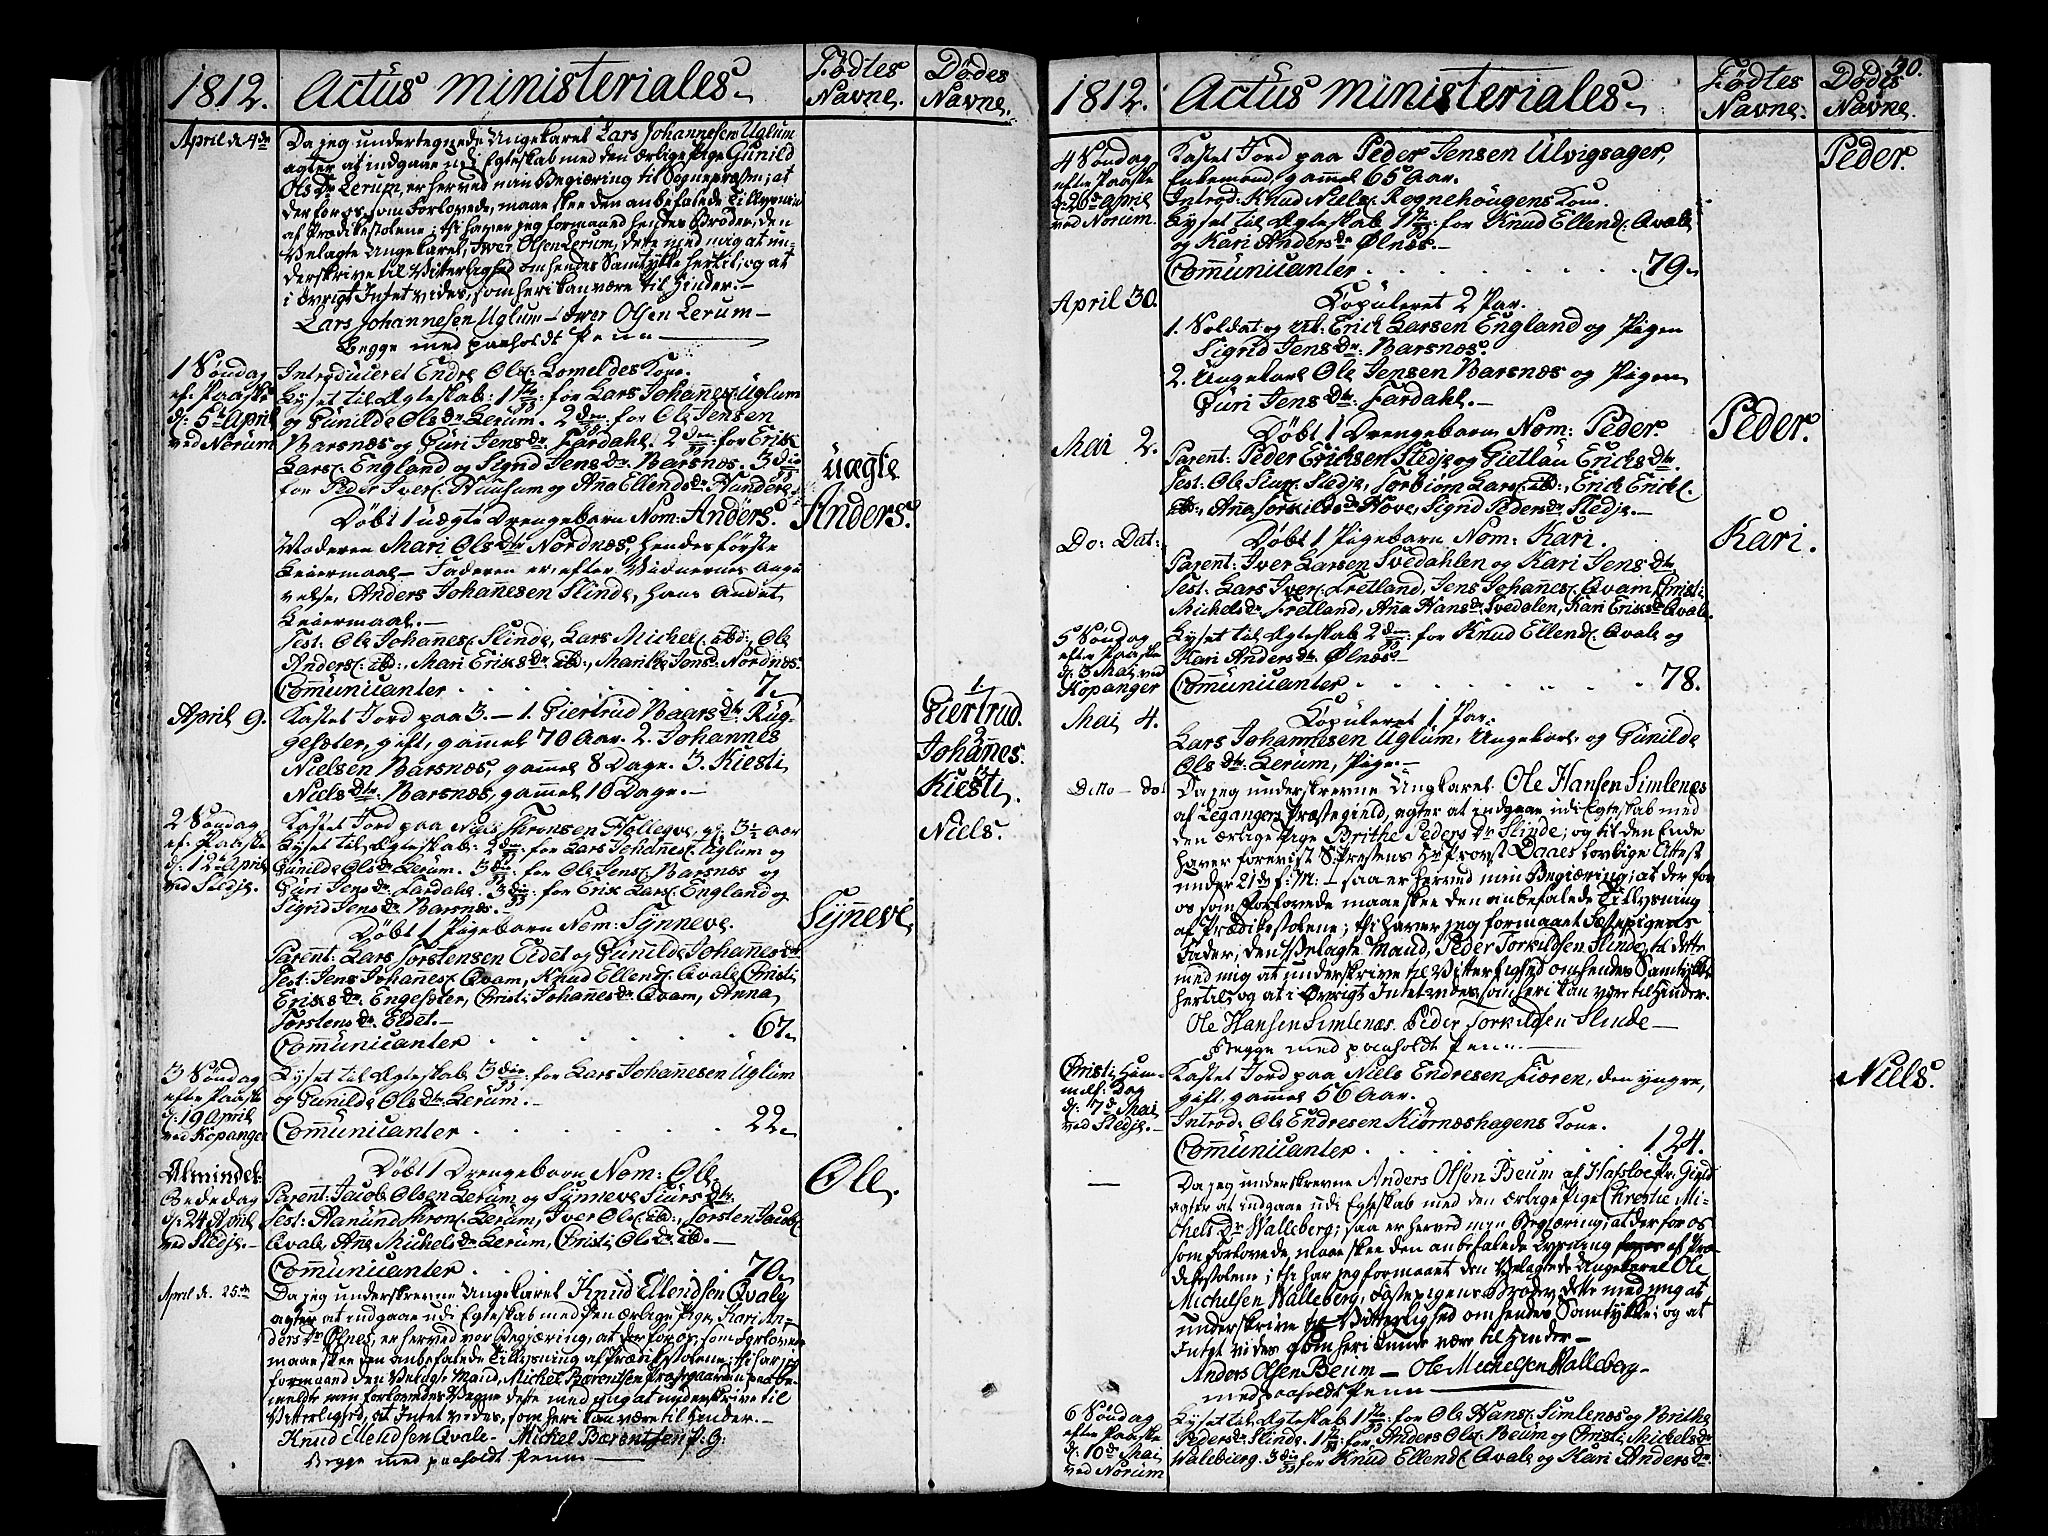 1812. Actus ministeriales. Fødtes Navne. Dødes Navne.
April d. 4de
Da jeg undertegnede Ungekarel Lars Johannesen Uglum
agter at indgaae udi Egteskab med den ærlige Pige Gunild
Ols Dr. Lerum, er herved min Begiæring til Sognepræsten; at
der for os, som Forlovede, maae skee den anbefalede Tillysning
af Prædikestolene; thi haver jeg formaaed hendes Broder, den
Velagte Ungekarel, Iwer Olsen Lerum, dete med mig at un-
derskrive til Vitterlighed om hendes Samtykke hertil; og at
i övrigt Intet vides, som heri kan være til Hinder.
Lars Johannesen Uglum - Iwer Olsen Lerum -
Begge med paaholdt Penn
1 Söndag ef: Paaske d: 5te April ved Norum
Introduceret Endre Ols: Lomeldes Kone.
Lyset til Ægteskab: 1ste: for Lars Johannes: Uglum
og Gunilde Ols dr: Lerum. 2den: for Ole Jensen
Barsnæs og Guri Jens dr: Fardahl. 2den: for Erik
Lars: England og Sigrid Jens dr: Barsnæs. 3die
for Peder Iver: Hausum og Aña Ellends dr: Handere
Döbt 1 uægte Drengebarn Nom: Anders.
uægte Anders.
Moderen Mari Ols dtr Nordnæs, hendes förste
Leiermaal - Faderen er, efter Vidnernes Angi-
velse, Anders Johannesen Slinde, hans Andet
Leiermaal.
Test: Ole Johañes: Slinde, Lars Michel: ibd:, Ole
Anders: ibd:, Mari Eriks dr ibd:, Nordnæs.
Comunicanter 7.
April 9.
Kastet Jord paa 3. - 1. Giertrud Baars dtr: Rug-
gesæter, gift, gamel 70 Aar. 2. Johannes
Nielsen Barsnæs, gamel 8 Dage. 3. Kiesti
Niels dtr: Barsnæs, gamel 10 Dage.
1. Giertrud.
2. Johañes.
3. Kiesti.
2 Söndag ef: Paaske d: 12te April ved Stedje.
Kastet Jord paa Niels Thronsen Hollegve, gl: 3½ Aar
Niels.
Lyset til Ægteskab: 2den for Lars Johañes: Uglum og
Gunilde Ols dr: Lerum. 3die: for Ole Jens: Barsnæs og
Guri Jens dr: Fardahl. 3die: for Erik Lars: England og
Sigrid Jens dr: Barsnæs.
Döbt 1 Pigebarn Nom: Synneve.
Syñeve
Parent: Lars Torstensen Eidet og Gunilde Johannes dr
Test: Jens Johañes: Qvam, Knud Ellend: Qvale, Christi
Eriks dr: Engesæter, Christi Johañes dr: Qvam, Anna
Torstens dr: Eidet.
Comunicanter 67.
3 Söndag efte Paaske d: 19 April ved Kopanger
Lyset til Ægteskab 3die: for Lars Johañesen Uglum
og Gunilde Ols dtr: Lerum.
Comunicanter 22.
Almindel: Bededag d: 24 April ved Stedje.
Döbt 1 Drengebarn Nom: Ole.
Ole.
Parent: Jacob Olsen Lerum og Synneve Siurs dtr.
Test: Aamund Thron: Lerum, Iver Ols: ibd:, Torsten Jacob:
Qvale, Ane Michels dr: Lerum, Christi Ols dr: ibd:
Comunicanter 70.
April d. 25de
Da jeg underskrevne Ungekarel Knud Ellendsen Qvale
agter at indgaae udi Egteskab med den ærlige Pige Kari An-
ders Dr Ølnes, er herved vor Begjæring, at der for os, som Forlovede
maae skee den anbefalede Tillysning af Prædikestolene; thi har jeg
formaaed den Velagte Mand, Michel Bærentsen
min forlovedes Vegne dette med mig at underskrive til
Vitterlighed, at Intet vides, som heri kan være til Hinder.
Knud Ellendsen Qvale - Michel Bærentsen
Begge med paaholdt Penn
1812. Actus ministeriales. Fødtes Navne. Dødes Navne.
4 Söndag efte Paaske d: 26de April ved Norum.
Kastet Jord paa Peder Jensen Ulvigsager,
Peder.
Enkemand, gammel 65 Aar.
Introd: Knud Niels: Rognehougens Kone.
Lyset til Ægteskab 1ste: for Knud Ellend: Qvale
og Kari Anders dr Ølnæs.
Comunicanter 79.
April 30.
Copuleret 2 Par.
1. Soldat og Erich Larsen England og Pigen
Sigrid Jens dr: Barsnæs.
2. Ungekarl Ole Jensen Barsnæs og Pigen
Guri Jens dtr: Fardahl.
Mai 2.
Döbt 1 Drengebarn Nom: Peder.
Peder.
Parent: Peder Ericksen Stedje og Gietlau Erichs dtr
Test: Ole Siur: Stedje, Torbiörn Lars: ibd:, Erich Erich:
ibd:, Aña Torkilds dr Hove, Sigrid Peders dr Stedje.
Do: Dat:
Döbt 1 Pigebarn Nom: Kari.
Kari.
Parent: Iver Larsen Svedahlen og Kari Jens dtr
Test: Lars Iver: Fretland, Jens Johañes: Qvam, Christi
Michels dr: Fretland, Aña Hans dr: Svedalen, Kari Eriks dr Qvale.
5 Söndag efte Paaske d: 3 Mai ved Kopanger
Lyset til Ægteskab 2den: for Knud Ellend: Qvale og
Kari Anders dtr: Ølnæs.
Comunicanter 78.
Mai 4.
Copuleret 1 Par.
Lars Johannesen Uglum, Ungekarl, og Gunilde
Ols dtr: Lerum, Pige.
Ditto - do
Da jeg underskrevne Ungkarel Ole Hansen Simlenæs
af Legangers Præstegield, agter at indgaae udi Egteskab med
den ærlige Pige Brithe Peders Dr Slinde; og til den Ende
haver forevist S: Prestens Hr Provst Daaes lovlige Attest
under 21de f: M: - saa er herved min Begiæring; at der for
os som Forlovede maae skee den anbefalede Tillysning
af Prædikestolene; thi haver jeg formaaet Fæstepigens
Fader, den Velagte Mand, Peder Torkildsen Slinde, til dette
med mig at underskrive til Vitterlighed om hendes Samtykke
hertil; og at i Øvrigt Intet vides, som heri kan være til Hinder.
Ole Hansen Simlenæs. Peder Torkildsen Slinde
Begge med paaholdt Penn
Christi Him-melf: Dag d: 7de Mai ved Stedje.
Kastet Jord paa Niels Endresen Fiæren, den yngre,
Niels.
gift, gammel 56 Aar.
Introd: Ole Endresen Kiörnæshagens Kone.
Comunicanter 124.
Da jeg underskrevne Anders Olsen Beum af Hafsloe Pr: Gield
agter at indgaae udi Egteskab med den ærlige Pige Christie Mi-
chels Dr Walleberg; saa er herved min Begjæring; at der for os
som Forlovede, maae skee den anbefalede Lysning af Præ-
dikestolene; thi har jeg formaaet den Velagtede Ungekarel Ole
Michelsen Walleberg, Fæstepigens Broder, dette med mig at
underskrive til Vitterlighed om hendes Samtykke; og at
Intet vides som heri kunde være til Hinder
Anders Olsen Beum - Ole Michelsen Walleberg
med paaholdt Penn
6 Söndag efte Paaske d: 10de Mai ved Norum
Lyset til Ægteskab 1ste: for Ole Hans: Simlenæs og Brithe
Peders dr Slinde. 1ste: for Anders Ols: Beum og Christi Michels dr
Waleberg. 3die for Knud Ellend: Qvale og Kari Anders dr